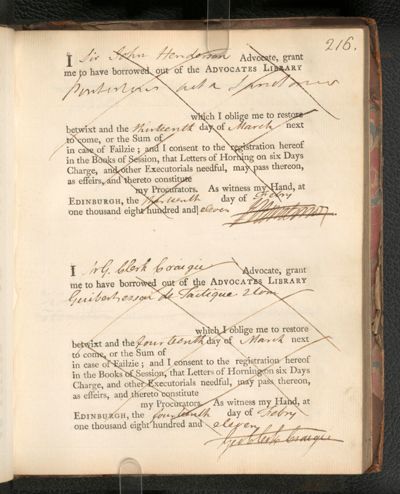 216.
I Sir John Henderson Advocate, grant
me to have borrowed out of the ADVOCATES LIBRARY
acta
which I oblige me to restore
betwixt and the thirteenth day of March next
to come, or the Sum of
in case of Failzie; and I consent to the registration hereof
in the Books of Session, that Letters of Horning on six Days
Charge, and other Executorials needful, may pass thereon,
as effeirs, and thereto constitute
my Procurators. As witness my Hand, at
EDINBURGH, the day of Febry
one thousand eight hundred and eleven
I G. Clerk Craigie Advocate, grant
me to have borrowed out of the ADVOCATES LIBRARY
Guibert essai de Tactique 2 tom
which I oblige me to restore
betwixt and the fourteenth day of March next
to come, or the Sum of
in case of Failzie; and I consent to the registration hereof
in the Books of Session, that Letters of Horning on six Days
Charge, and other Executorials needful, may pass thereon,
as effeirs, and thereto constitute
my Procurators. As witness my Hand, at
EDINBURGH, the fourteenth day of Febry
one thousand eight hundred and eleven
Geo Clerk Craigie